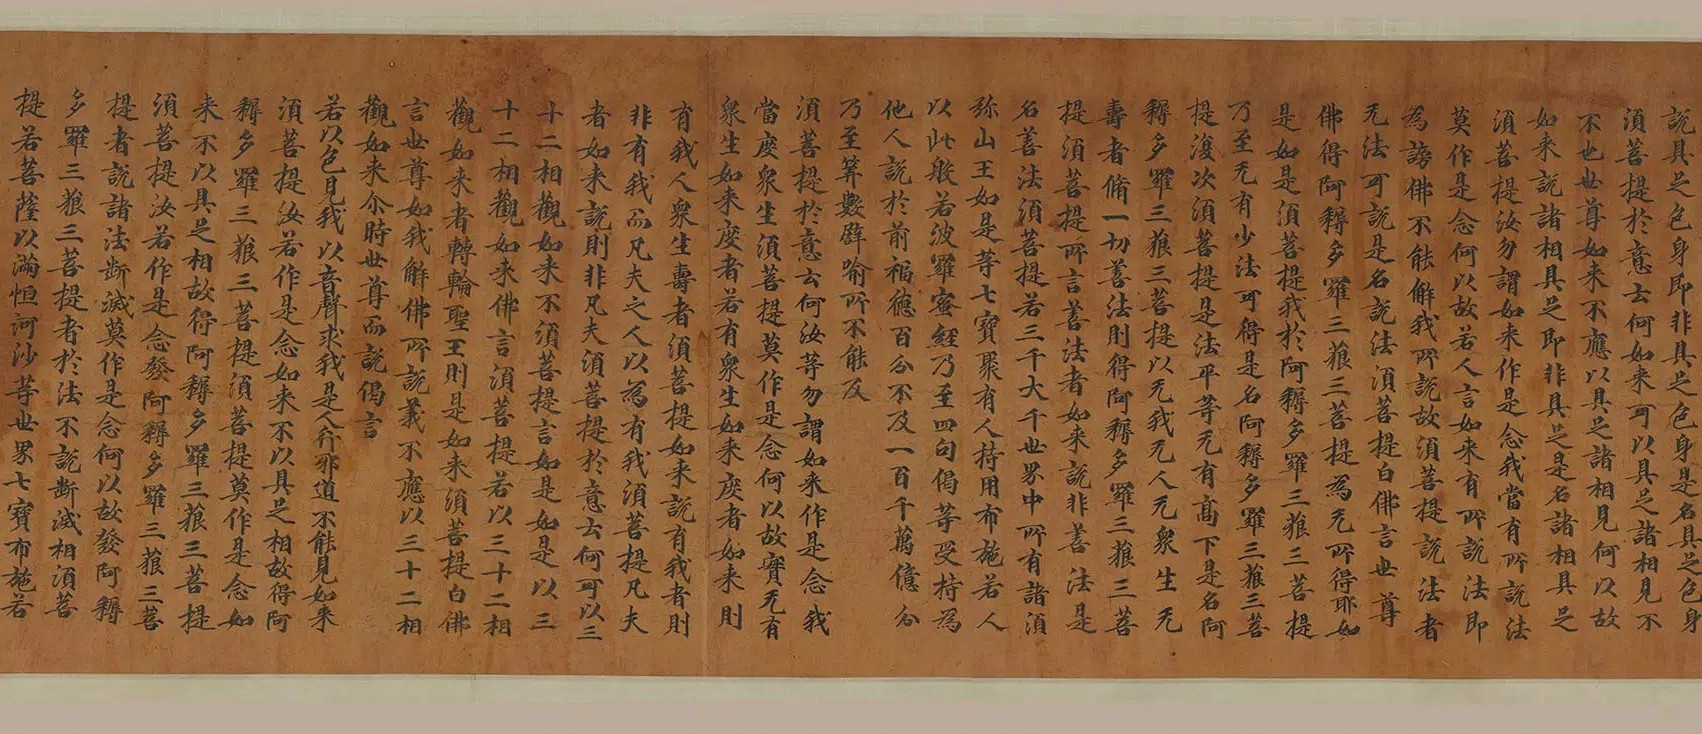 說具足色身即非具足色身是名具足色身
須菩提於意云何如來可以具足諸相見不
不也世尊如來不應以具足諸相見何以故
如來說諸相具足即非具足是名諸相具足
須菩提汝勿謂如來作是念我當有所說法
莫作是念何以故若人言如來有所說法即
為謗佛不能解我所說故須菩提說法者
无法可說是名說法須菩提白佛言世尊
佛得阿耨多羅三藐三菩提為无所得耶如
是如是須菩提我於阿耨多羅三藐三菩提
乃至无有少法可得是名阿耨多羅三藐三菩
提復次須菩提是法平等无有高下是名阿
耨多羅三藐三菩提以无我无人无眾生无
壽者脩一切善法則得阿耨多羅三藐三菩
提須菩提所言善法者如來說非善法是
名善法須菩提若三千大千世界中所有諸須
弥山王如是等七寶聚有人持用布施若人
以此般若波羅蜜經乃至四句偈等受持為
他人說於前福德百分不及一百千萬億分
乃至筭數譬喻所不能及
須菩提於意云何汝等勿謂如來作是念我
當度眾生須菩提莫作是念何以故實无有
眾生如來度者若有眾生如來度者如來則
有我人眾生壽者須菩提如來說有我者則
非有我而凡夫之人以為有我須菩提凡夫
者如來說則非凡夫須菩提於意云何可以三
十二相觀如來不須菩提言如是如是以三
十二相觀如來佛言須菩提若以三十二相
觀如來者轉輪聖王則是如來須菩提白佛
言世尊如我解佛所說義不應以三十二相
觀如來尒時世尊而說偈言
若以色見我以音聲求我是人行邪道不能見如來
須菩提汝若作是念如來不以具足相故得阿
耨多羅三藐三菩提須菩提莫作是念如
來不以具足相故得阿耨多羅三藐三菩提
須菩提汝若作是念發阿耨多羅三藐三菩
提者說諸法斷滅莫作是念何以故發阿耨
多羅三藐三菩提者於法不說斷滅相須菩
提若菩薩以滿恒河沙等世界七寶布施若